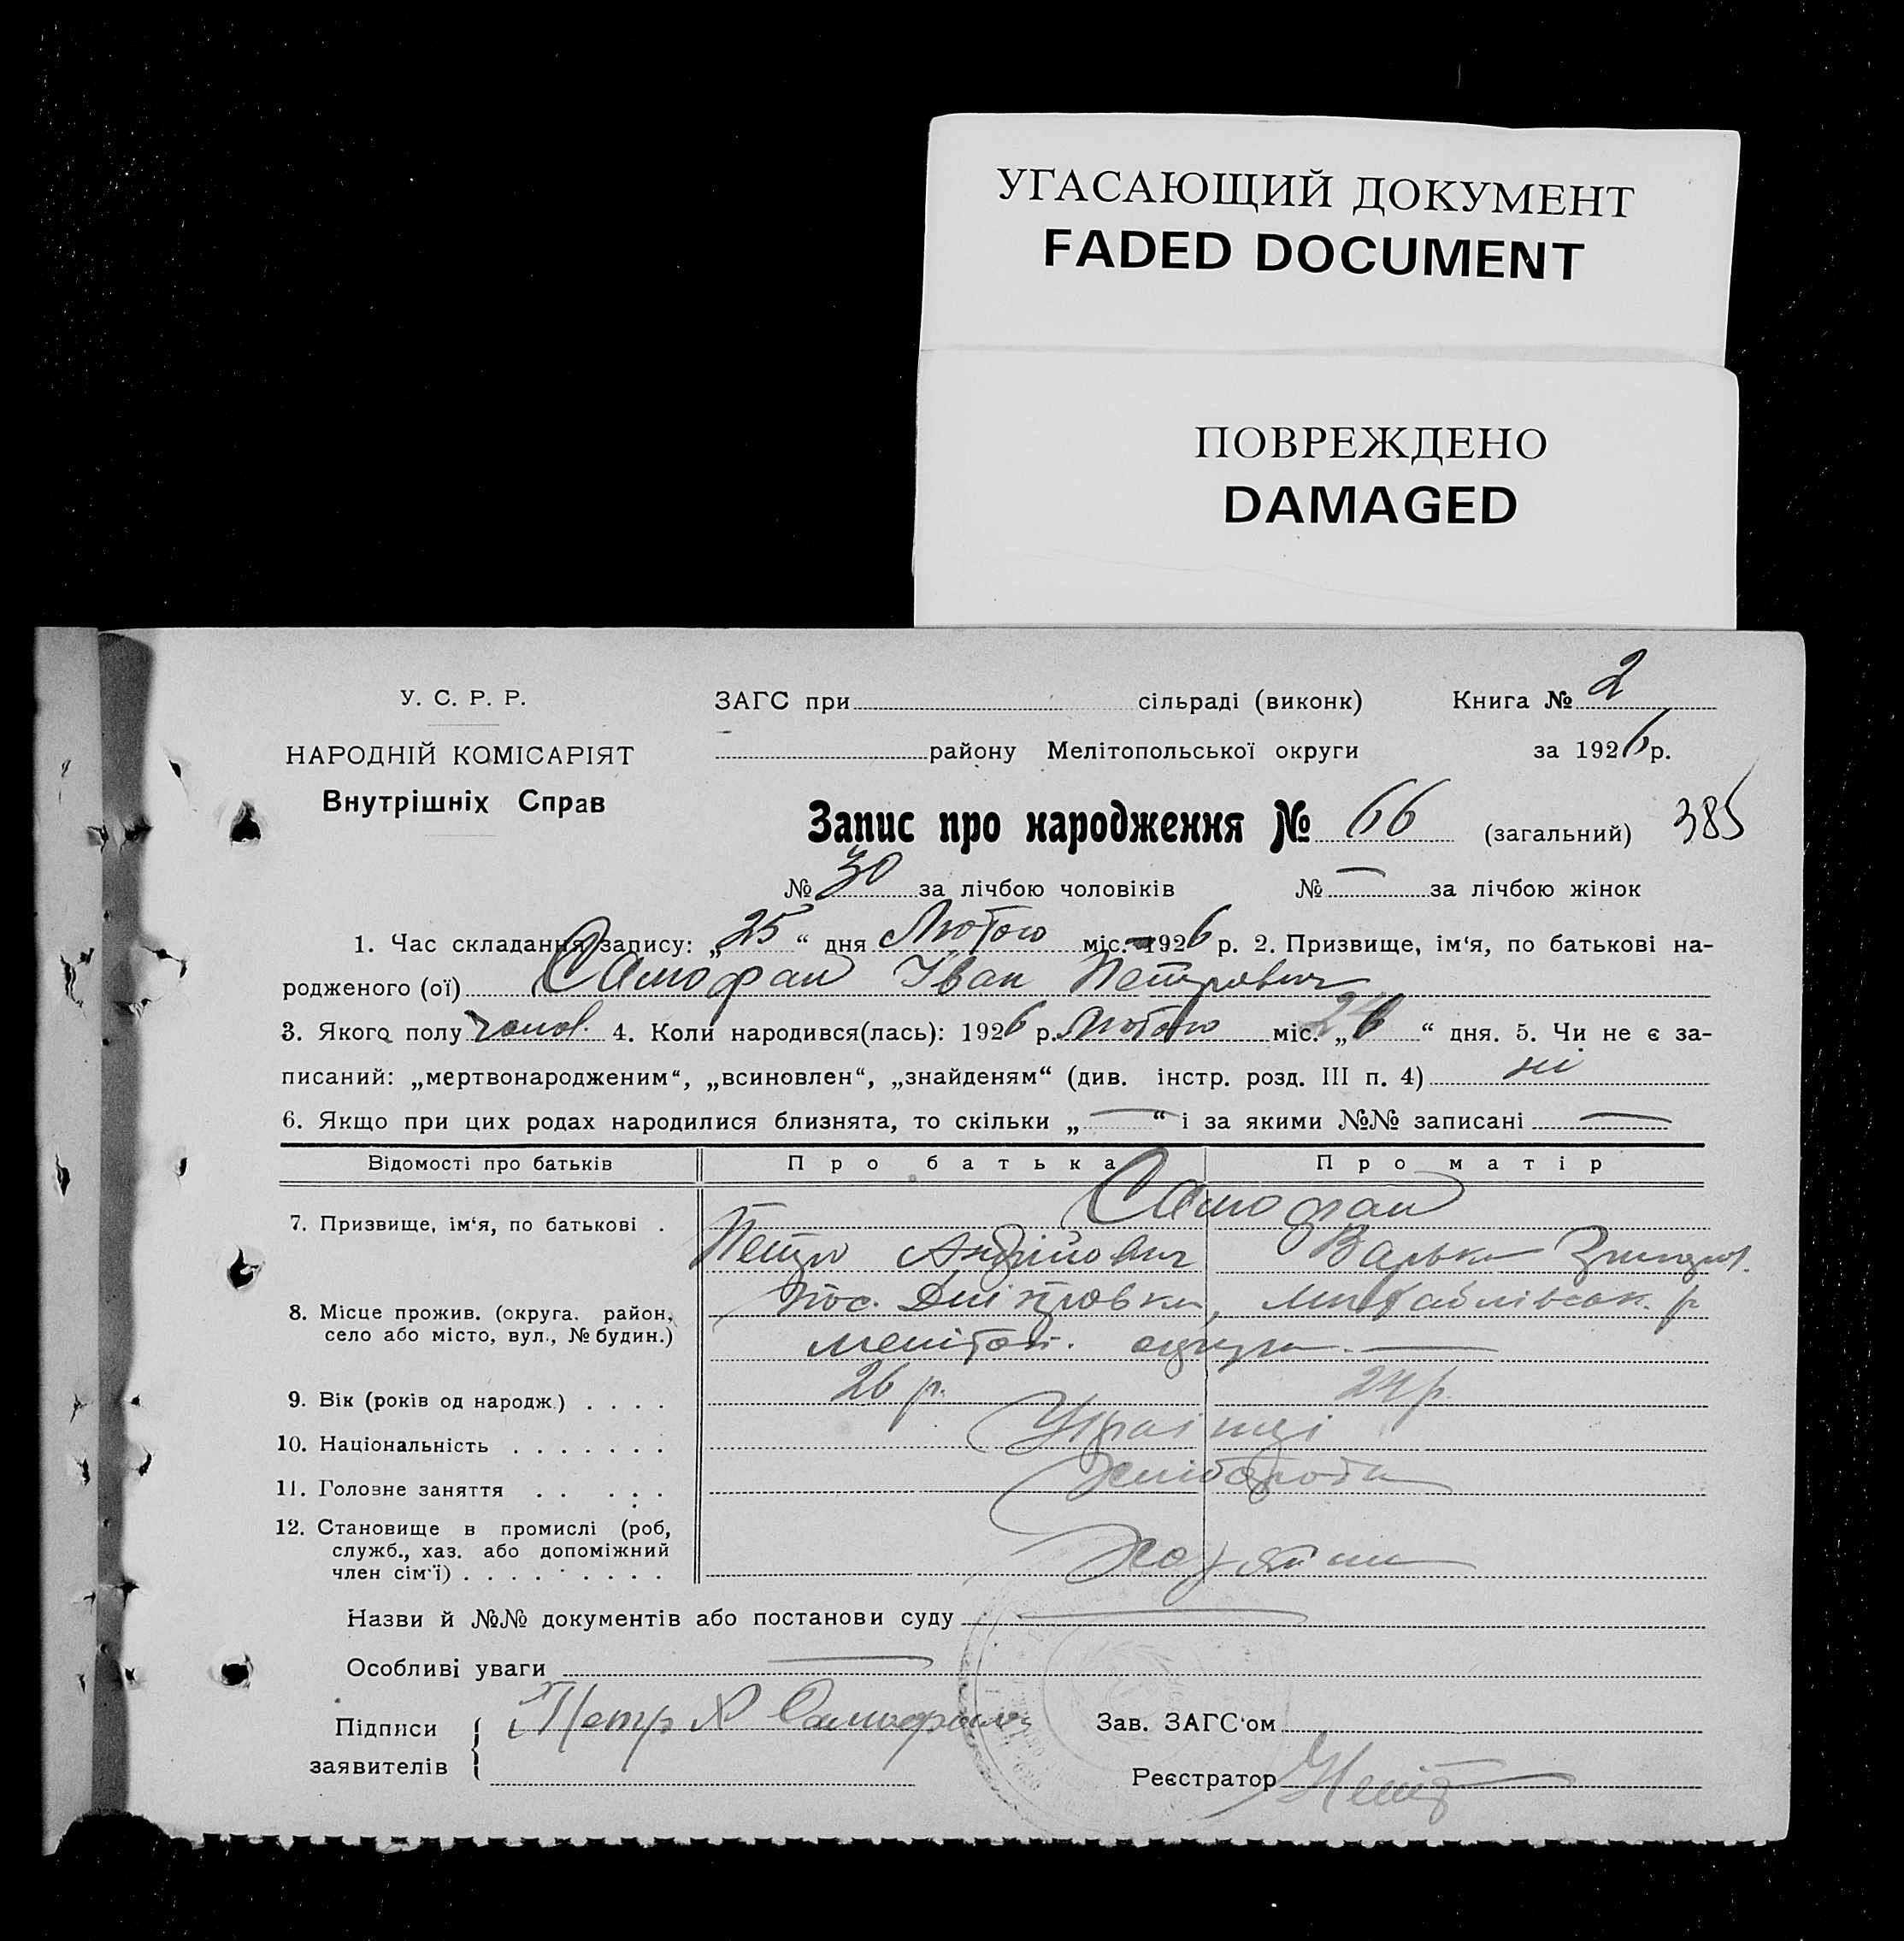 УГАСАЮЩИЙ ДОКУМЕНТ
FADED DOCUMENT
ПОВРЕЖДЕНО
DAMAGED
У. С. Р. Р.
НАРОДНІЙ КОМІСАРІЯТ
Внутрішніх Справ
ЗАГС при сільраді (виконк) Книга № 2
району Мелітопольської округи за 1926 р.
Запис про народження № 66 (загальний) 385
№ 30 за лічбою чоловіків № — за лічбою жінок
1. Час складання запису: „25“ дня Лютого міс. 1926 р. 2. Призвище, ім‘я, по батькові на-
родженого (ої) Самофал Іван Петрович
3. Якого полу чолов. 4. Коли народився(лась): 1926 р. Лютого міс. „ “ дня. 5. Чи не є за-
писаний: „мертвонародженим“, „всиновлен“, „знайденям“ (див. інстр. розд. III п. 4) ні
6. Якщо при цих родах народилися близнята, то скільки „—“ і за якими №№ записані —
Відомості про батьків Про батька Про матір
Самофал
7. Призвище, ім‘я, по батькові .
Петро Андрійович Варька
8. Місце прожив. (округа, район, село або місто, вул., № будин.)
пос. Дніпровка, Михайлівськ. р
Меліто́п. округи. —
9. Вік (років од народж.) . . . . 26 р. 24 р.
10. Національність . . . . . . . Українці
11. Головне заняття . . . . . Хліборобы
12. Становище в промислі (роб,
служб., хаз. або допоміжний
член сім‘ї) . . . . . . . . . Хозяїни
Назви й №№ документів або постанови суду —
Особливі уваги —
Підписи заявителів { Петр А Самофалов
Зав. ЗАГС‘ом
Реєстратор